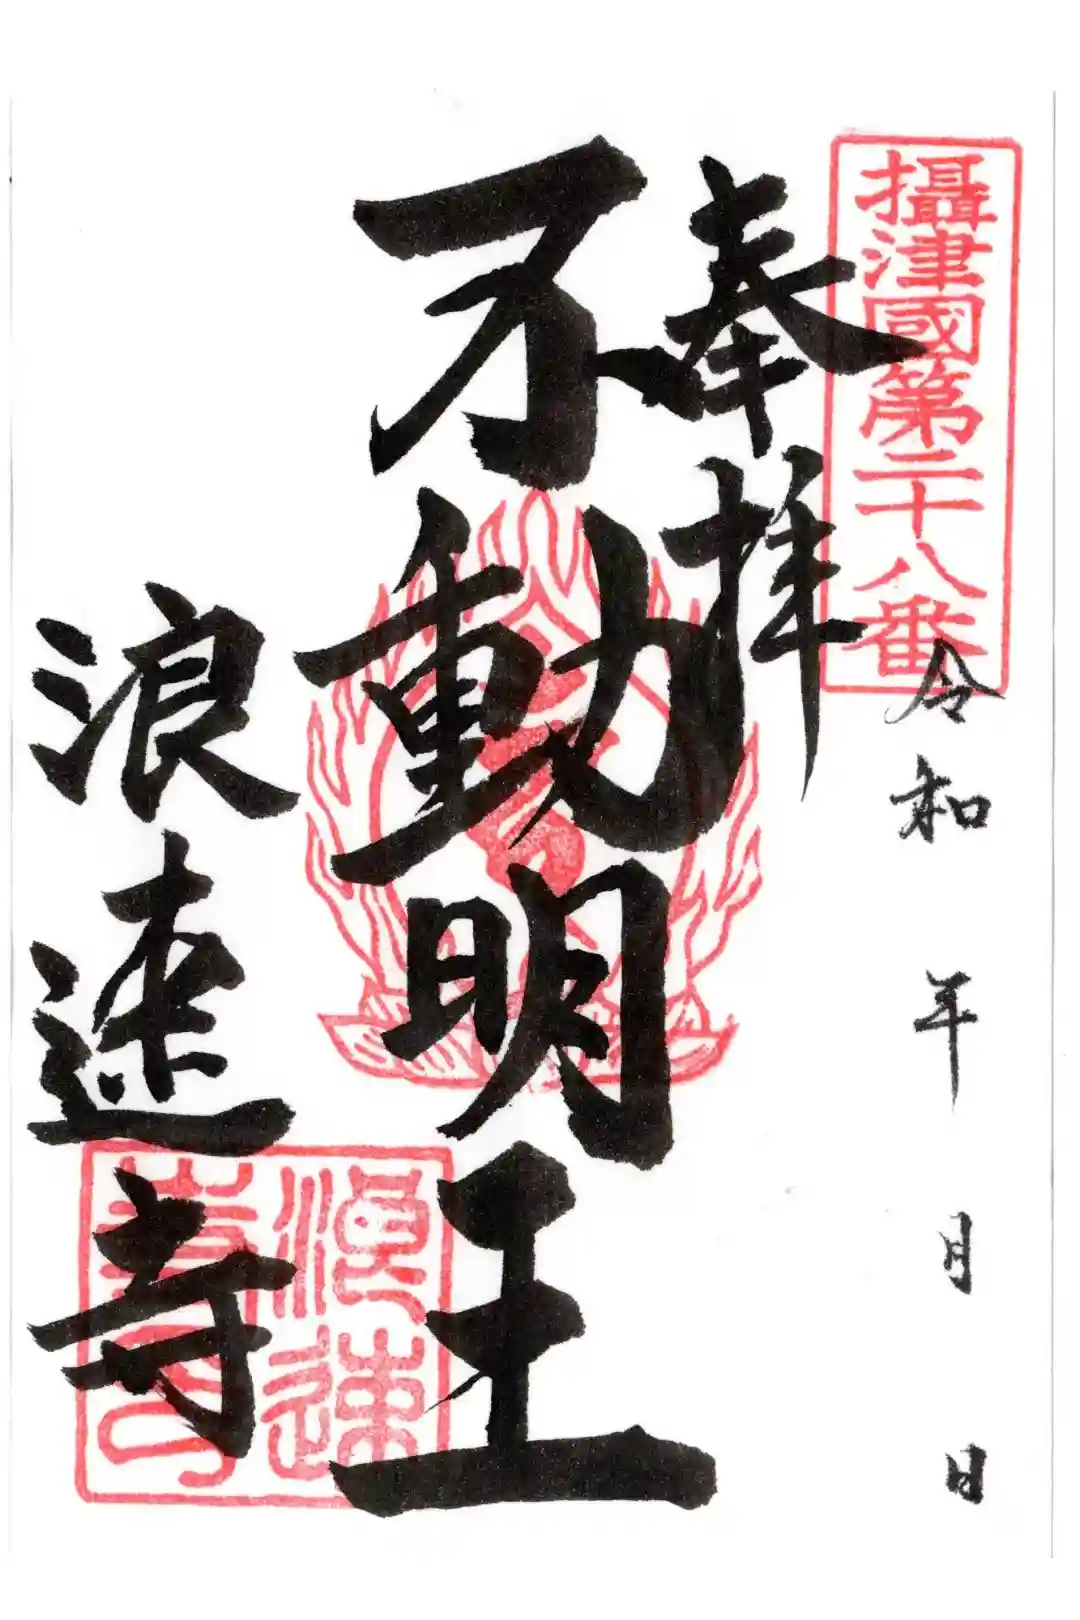 攝津國第二十八番
令和 年 月 日
奉拝
不動明王
浪速寺
浪速
寺印